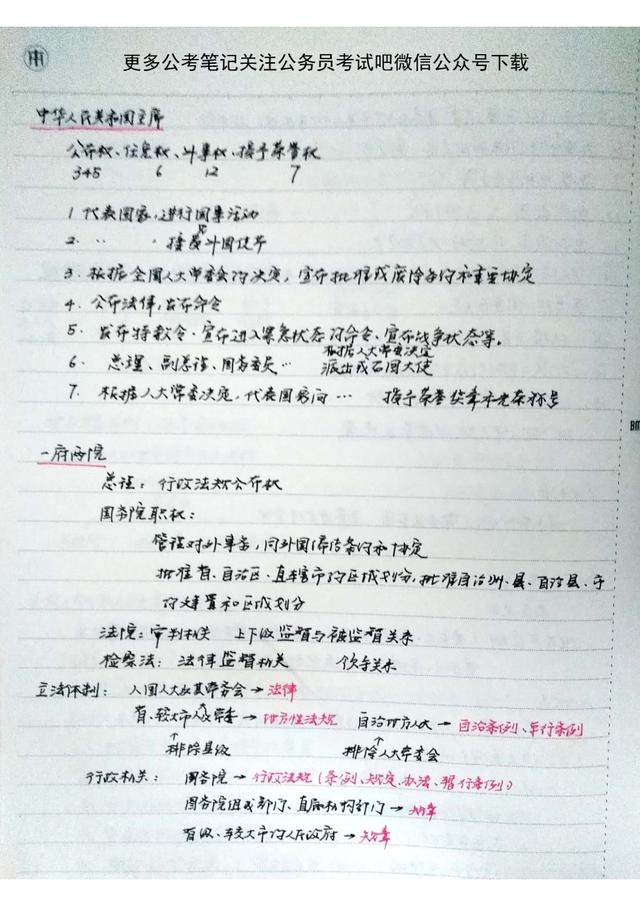 更多公考笔记关注公务员考试吧微信公众号下载
中华人民共和国主席
公布权、任免权、外事权、授予荣誉权
345 6 12 7
1 代表国家，进行国事活动
2. 〃 〃 接受外国使节
3. 根据全国人大常委会的决定，宣布批准或废除条约和重要协定
4. 公布法律，发布命令
5. 发布特赦令、宣布进入紧急状态的命令、宣布战争状态等。
根据人大常委决定
6. 总理、副总理、国务委员… 派出或召回大使
7. 根据人大常委决定，代表国家向… 授予荣誉奖章和光荣称号
一府两院
总理：行政法规公布权
国务院职权：
管理对外事务，同外国缔结条约和协定
批准省、自治区、直辖市的区域划分，批准自治州、县、自治县、市
的建置和区域划分
法院：审判机关 上下级监督与被监督关系
检察法：法律监督机关 领导关系
立法体制：全国人大及其常委会→法律
省、较大市人大常委→地方性法规 自治地方人大→自治条例、单行条例
排除县级 排除人大常委会
行政机关：国务院→行政法规（条例、规定、办法、暂行条例）
国务院组成部门、直属机构部门→规章
省级、较大市的人民政府→规章